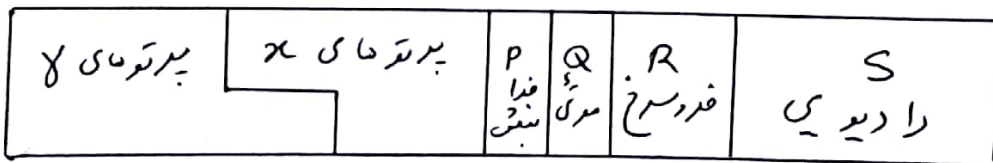 پرتوهای γ
پرتوهای x
P
فرا
بنفش
Q
مرئی
R
فروسرخ
S
رادیویی